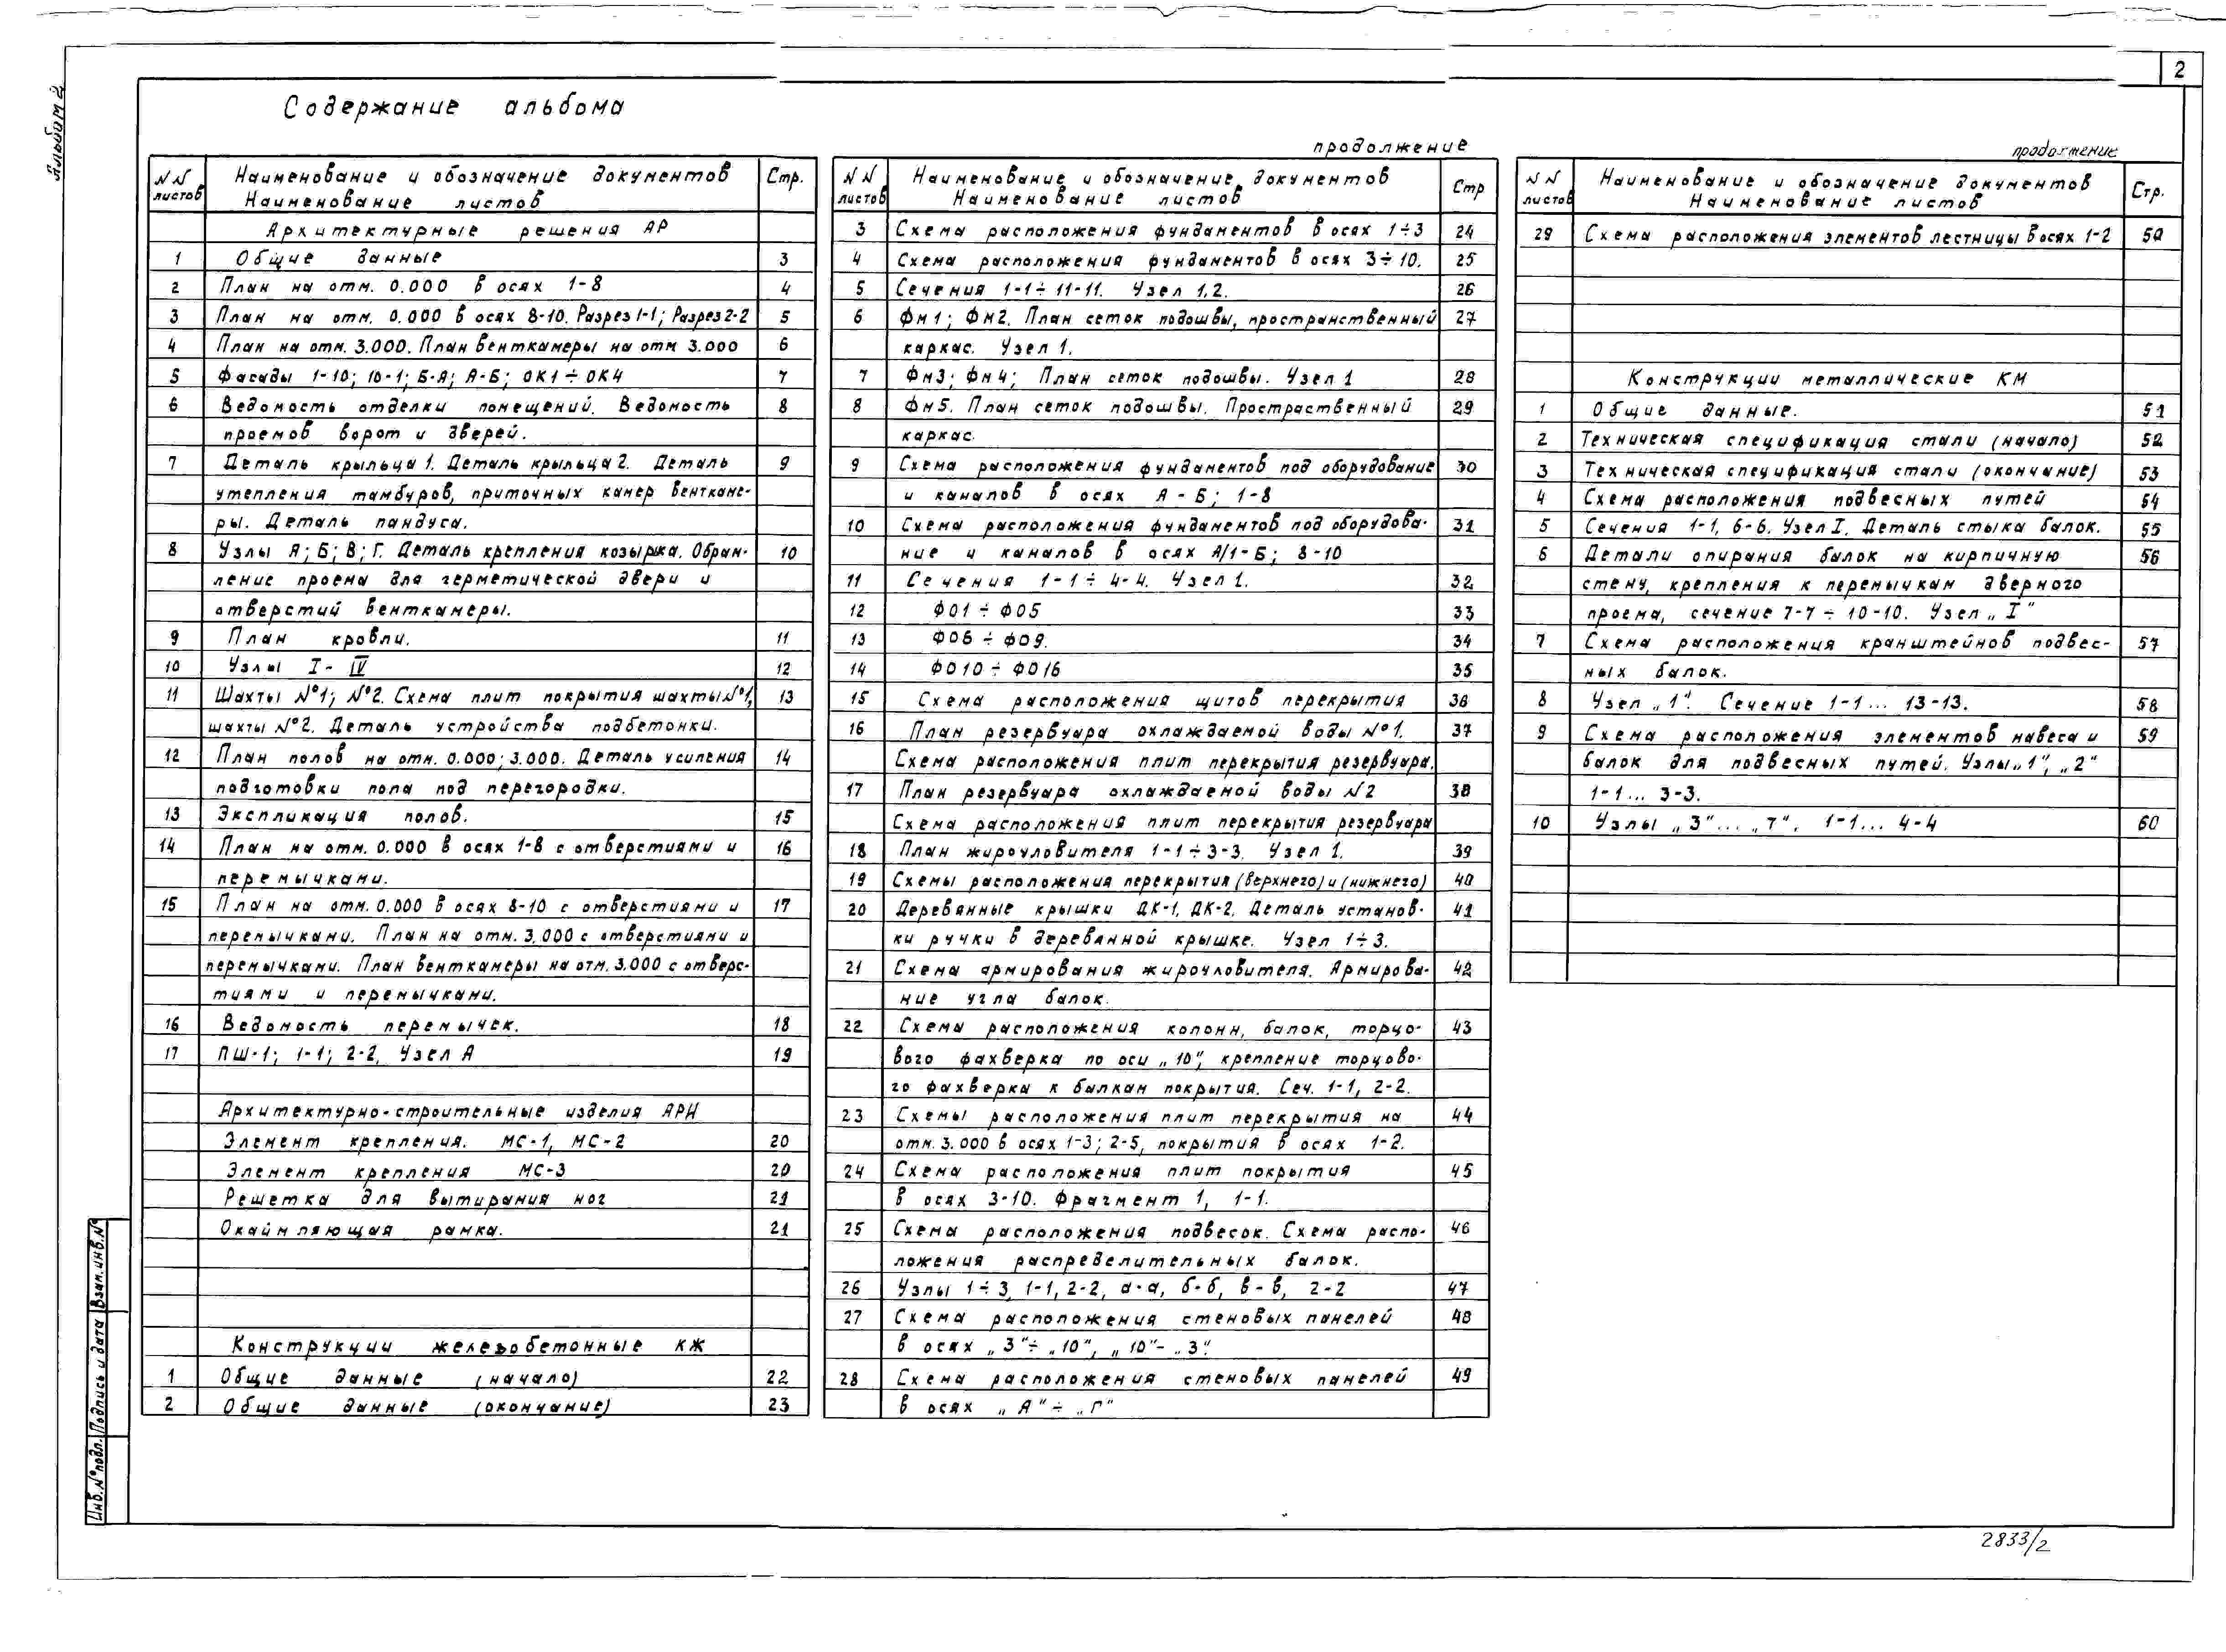 2
Альбом 2
Содержание альбома
NN листов Наименование и обозначение документов Наименование листов Стр.
Архитектурные решения АР
1 Общие данные 3
2 План на отм. 0.000 в осях 1-8 4
3 План на отм. 0.000 в осях 8-10. Разрез 1-1; Разрез 2-2 5
4 План на отм. 3.000. План венткамеры на отм 3.000 6
5 Фасады 1-10; 10-1; Б-А; А-Б; ОК1÷ОК4 7
6 Ведомость отделки помещений. Ведомость 8
проемов ворот и дверей.
7 Деталь крыльца 1. Деталь крыльца 2. Деталь 9
утепления тамбуров, приточных камер венткаме-
ры. Деталь пандуса.
8 Узлы А; Б; В; Г. Деталь крепления козырька. Обрам- 10
ление проема для герметической двери и
отверстий венткамеры.
9 План кровли. 11
10 Узлы I-IV 12
11 Шахты №1; №2. Схема плит покрытия шахты №1, 13
шахты №2. Деталь устройства подбетонки.
12 План полов на отм. 0.000; 3.000. Деталь усиления 14
подготовки пола под перегородки.
13 Экспликация полов. 15
14 План на отм. 0.000 в осях 1-8 с отверстиями и 16
перемычками.
15 План на отм. 0.000 в осях 8-10 с отверстиями и 17
перемычками. План на отм. 3.000 с отверстиями и
перемычками. План венткамеры на отм. 3.000 с отверс-
тиями и перемычками.
16 Ведомость перемычек. 18
17 ПШ-1; 1-1; 2-2. Узел А 19
Архитектурно-строительные изделия АРИ
Элемент крепления. МС-1, МС-2 20
Элемент крепления МС-3 20
Решетка для вытирания ног 21
Окаймляющая рамка. 21
Конструкции железобетонные КЖ
1 Общие данные (начало) 22
2 Общие данные (окончание) 23
продолжение
NN листов Наименование и обозначение документов Наименование листов Стр
3 Схема расположения фундаментов в осях 1÷3 24
4 Схема расположения фундаментов в осях 3÷10. 25
5 Сечения 1-1÷11-11. Узел 1,2. 26
6 Фм1; Фм2. План сеток подошвы, пространственный 27
каркас. Узел 1.
7 Фм3; Фм4; План сеток подошвы. Узел 1 28
8 Фм5. План сеток подошвы. Простраственный 29
каркас.
9 Схема расположения фундаментов под оборудование 30
и каналов в осях А-Б; 1-8
10 Схема расположения фундаментов под оборудова- 31
ние и каналов в осях А/1-Б; 8-10
11 Сечения 1-1÷4-4. Узел 1. 32
12 ФО1÷ФО5 33
13 ФО6÷ФО9. 34
14 ФО10÷ФО16 35
15 Схема расположения щитов перекрытия 36
16 План резервуара охлаждаемой воды №1. 37
Схема расположения плит перекрытия резервуара.
17 План резервуара охлаждаемой воды №2 38
Схема расположения плит перекрытия резервуара
18 План жироуловителя 1-1÷3-3. Узел 1. 39
19 Схемы расположения перекрытия (верхнего) и (нижнего) 40
20 Деревянные крышки ДК-1, ДК-2. Деталь установ- 41
ки ручки в деревянной крышке. Узел 1÷3.
21 Схема армирования жироуловителя. Армирова- 42
ние угла балок.
22 Схемы расположения колонн, балок, торцо- 43
вого фахверка по оси „10", крепление торцово-
го фахверка к балкам покрытия. Сеч. 1-1, 2-2.
23 Схемы расположения плит перекрытия на 44
отм. 3.000 в осях 1-3; 2-5, покрытия в осях 1-2.
24 Схема расположения плит покрытия 45
в осях 3-10. Фрагмент 1, 1-1.
25 Схема расположения подвесок. Схема распо- 46
ложения распределительных балок.
26 Узлы 1÷3, 1-1, 2-2, а-а, б-б, в-в, 2-2 47
27 Схема расположения стеновых панелей 48
в осях „3"÷„10", „10"-„3".
28 Схема расположения стеновых панелей 49
в осях „А"÷„Г"
продолжение
NN листов Наименование и обозначение документов Наименование листов Стр.
29 Схема расположения элементов лестницы в осях 1-2 50
Конструкции металлические КМ
1 Общие данные. 51
2 Техническая спецификация стали (начало) 52
3 Техническая спецификация стали (окончание) 53
4 Схема расположения подвесных путей 54
5 Сечения 1-1, 6-6. Узел I. Деталь стыка балок. 55
6 Детали опирания балок на кирпичную 56
стену, крепления к перемычкам дверного
проема, сечение 7-7÷10-10. Узел „I"
7 Схема расположения кранштейнов подвес- 57
ных балок.
8 Узел „1". Сечение 1-1... 13-13. 58
9 Схема расположения элементов навеса и 59
балок для подвесных путей. Узлы „1", „2"
1-1... 3-3.
10 Узлы „3"... „7". 1-1... 4-4 60
Инв.№ подл. Подпись и дата Взам.инв.№
2833/2